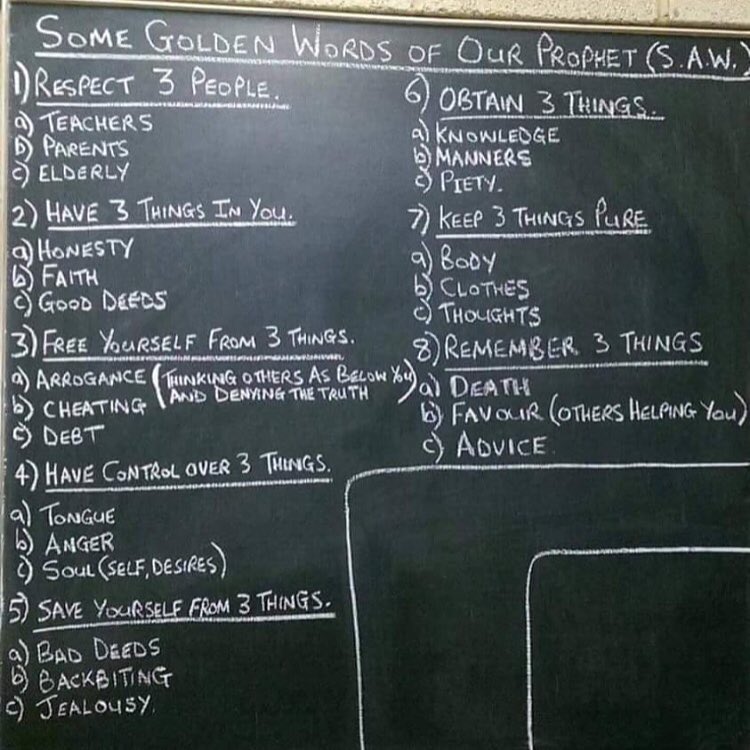 SOME GOLDEN WORDS OF OUR PROPHET (S.A.W.)
1) RESPECT 3 PEOPLE.
a) TEACHERS
b) PARENTS
c) ELDERLY
2) HAVE 3 THINGS IN YOU.
a) HONESTY
b) FAITH
c) GOOD DEEDS
3) FREE YOURSELF FROM 3 THINGS.
a) ARROGANCE (THINKING OTHERS AS BELOW YOU
AND DENYING THE TRUTH)
b) CHEATING
c) DEBT
4) HAVE CONTROL OVER 3 THINGS.
a) TONGUE
b) ANGER
c) SOUL (SELF, DESIRES)
5) SAVE YOURSELF FROM 3 THINGS.
a) BAD DEEDS
b) BACKBITING
c) JEALOUSY.
6) OBTAIN 3 THINGS.
a) KNOWLEDGE
b) MANNERS
c) PIETY.
7) KEEP 3 THINGS PURE
a) BODY
b) CLOTHES
c) THOUGHTS
8) REMEMBER 3 THINGS
a) DEATH
b) FAVOUR (OTHERS HELPING YOU)
c) ADVICE.